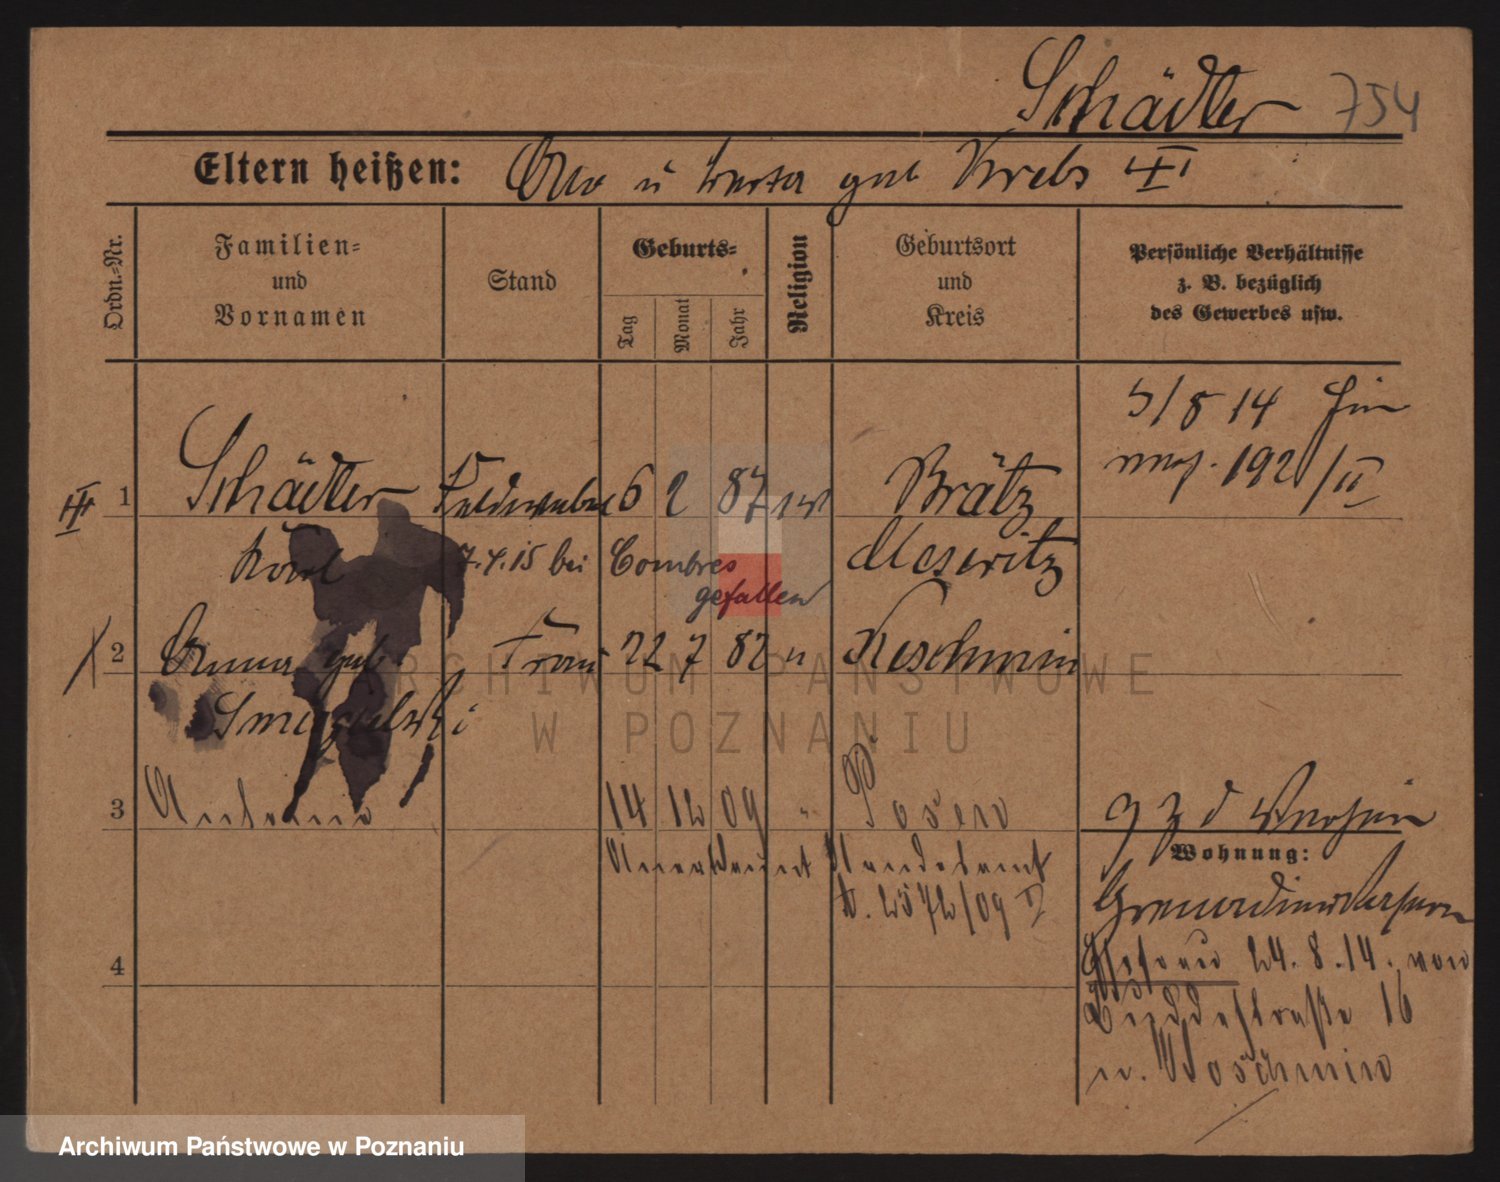 Schädler 754
Eltern heißen: Otto u Berta geb Krebs
Ordn.-Nr.
Familien- und Vornamen
Stand
Geburts-
Tag
Monat
Jahr
Religion
Geburtsort und Kreis
Persönliche Verhältnisse
z. B. bezüglich
des Gewerbes usw.
5/8 14
192 /II
III 1 Schädler Feldwebel 6 2 87 Brätz
Karl 7.4.15 bei Combres Meseritz
gefallen
2 Anna geb Frau 22 7 82 " Koschmin
Smigielski
3 14 12 09 " Posen
Anerkannt Standesamt
2572/09
Wohnung:
Grenadierkasern
24.8.14. von
straße 16
n. Koschmin
4
ARCHIWUM PAŃSTWOWE
W POZNANIU
Archiwum Państwowe w Poznaniu